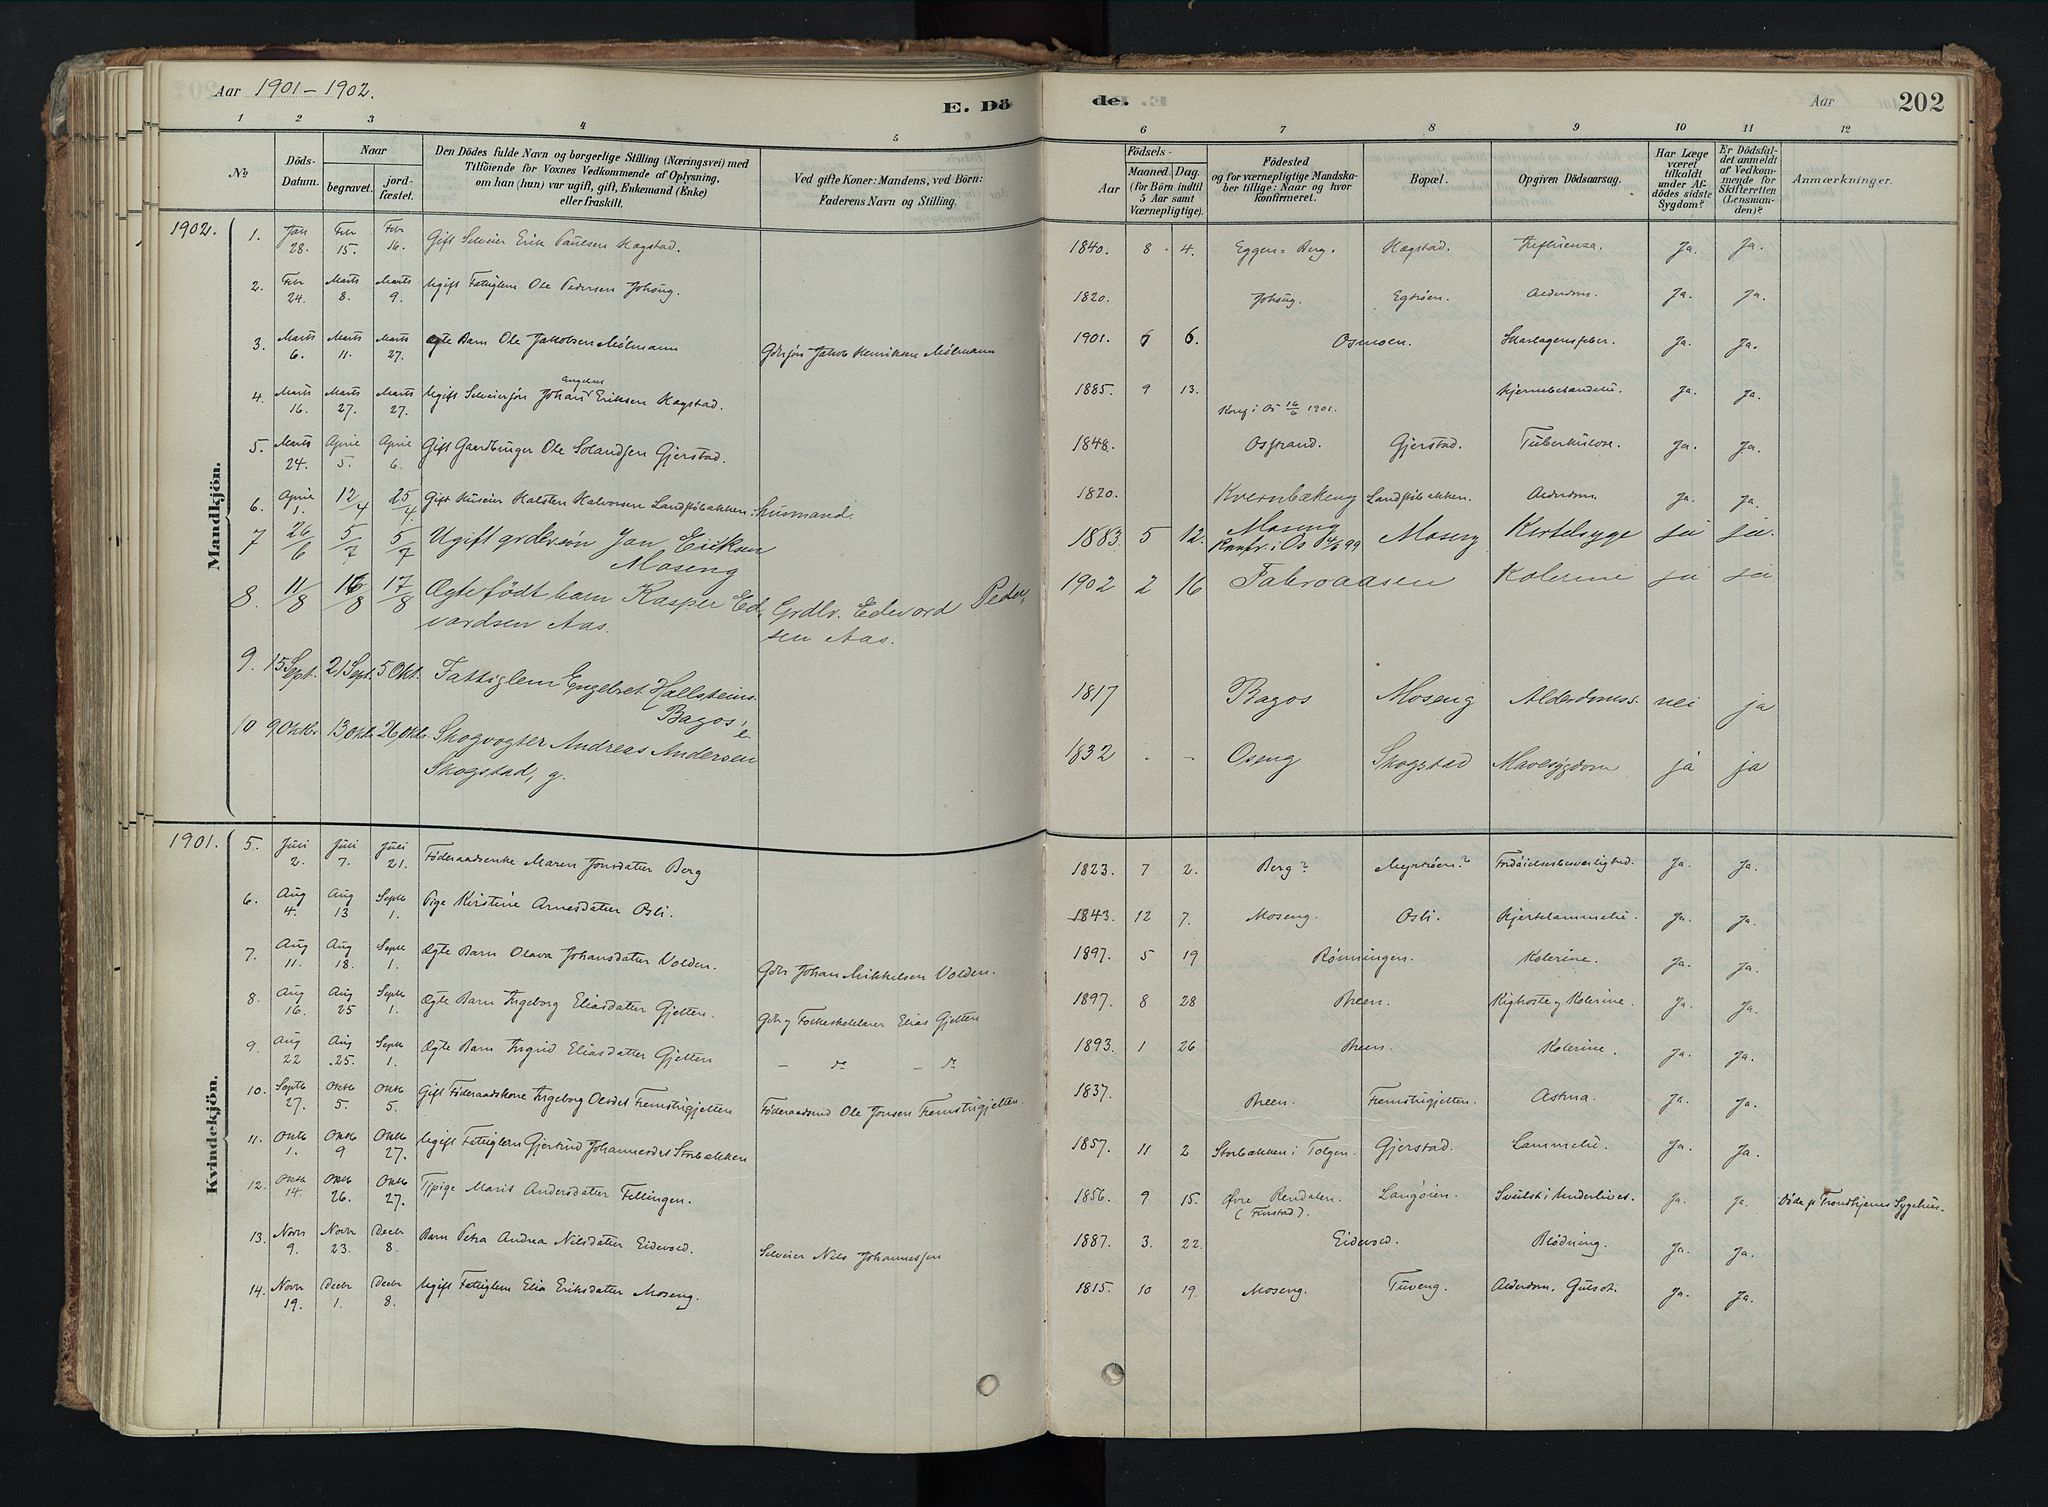 Aar 1901-1902.
E. Dö
de.
Aar
202
1 2 3 4 5 6 7 8 9 10 11 12
No
Döds-
Datum.
Naar
begravet.
jord-
fæstet.
Den Dödes fulde Navn og borgerlige Stilling (Næringsvei) med
Tilföiende for Voxnes Vedkommende af Oplysning,
om han (hun) var ugift, gift, Enkemand (Enke)
eller fraskilt.
Ved gifte Koner: Mandens, ved Börn:
Faderens Navn og Stilling.
Födsels-
Aar
Maaned. Dag.
(for Börn indtil
5 Aar samt
Værnepligtige).
Födested
og for værnepligtige Mandska-
ber tillige: Naar og hvor
konfirmeret.
Bopæl.
Opgiven Dödsaarsag.
Har Læge
været
tilkaldt
under Af-
dödes sidste
Sygdom?
Er Dödsfal-
det anmeldt
af Vedkom-
mende for
Skifteretten
(Lensman-
den)?
Anmærkninger.
Mandkjön.
1902. 1. Jan 28. Febr 15. Febr 16. Gift Selveier Erik Paulsen Hagstad. 1840. 8 4. Eggen - Berg. Hagstad. Influenza. Ja. Ja.
2. Febr 24. Marts 8. Marts 9. Ugift Fattiglem Ole Pedersen Johsug. 1820. Johsug. Egtrøen. Alderdom. Ja. Ja.
3. Marts 6. Marts 11. Marts 27. Ægte Barn Ole Jakobsen Mølmann Jakob Henriksen Mølmann 1901. 6 6. Osmoen. Skarlagensfeber. Ja. Ja.
4. Marts 16. Marts 27. Marts 27. Ugift Selveiersøn Johan Engebret Eriksen Hagstad. 1885. 9 13. Konf i Os 16/6 1901. Hjernebetændelse. Ja. Ja.
5. Marts 24. April 5. April 6. Gift Gaardbruger Ole Olandsen Gjerstad. 1848. Osstrand. Gjerstad. Tuberkulose. Ja. Ja.
6. April 1. 12/4 25/4. Gift Huseier Halsten Halvorsen Landstøbakken: husmand. 1820. Kvernbækeng Landstøbakken. Alderdom. Ja. Ja.
7 26/6 5/7 5/7 Ugift grdersøn Jon Eriksen
Moseng 1883. 5 12. Moseng
Konfr. i Os 99 Moseng Kirtelsyge ja ja.
8. 11/8 16/8 17/8 Ægtefødt barn Kasper Ed-
vardsen Aas. Grdbr. Edevard Peder-
sen Aas. 1902 2 16 Fabroaasen Kolerine ja ja
9. 15 Sept. 21 Sept. 5 Okt. Fattiglem Engebret Hallsteins.
Bagos, e. 1817 Bagos Moseng Alderdomss. nei ja
10 9 Oktbr. 13 oktbr. 26 oktbr. Skogvogter Andreas Andersen
Skogstad, g. 1832 - - Oseng Skogstad Mavesygdom ja ja
Kvindekjön.
1901. 5. Juli 2. Juli 7. Juli 21. Føderaadsenke Maren Jonsdatter Berg 1823. 7 2. Berg? Myrtrøen? Fordøielsesbesværlighed. Ja. Ja.
6. Aug 4. Aug 13 Septb 1. Pige Kirstine Arnesdatter Osli. 1843. 12 7. Moseng. Osli. Hjertelammelse. Ja. Ja.
7. Aug 11. Aug 18. Septb 1. Ægte Barn Olava Johansdatter Volden. Gbr Johan Mikkelsen Volden. 1897. 5 19 Rønningen. Kolerine. Ja. Ja.
8. Aug 16. Aug 25 Septb 1. Ægte Barn Ingeborg Eliasdatter Gjelten. Gbr og Folkeskolelærer Elias Gjelten 1897. 8 28 Breen. Kighoste og Kolerine. Ja. Ja.
9. Aug 22 Aug 25. Septb 1. Ægte Barn Ingrid Eliasdatter Gjelten - do - do 1893. 1 26 Breen. Kolerine. Ja. Ja.
10. Septb 27. Oktb 5. Oktb 5. Gift Føderaadskone Ingeborg Olesdt Fremstugjelten Føderaadsmd Ole Jonsen Fremstugjelten. 1837. Breen. Fremstugjelten. Astma. Ja. Ja.
11. Oktb 1. Oktb 9 Oktb 27. Ugift Fattiglem Gjertrud Johannesdt Storbækken 1857. 11 2 Storbækken i Tolgen. Gjerstad. Lammelse. Ja. Ja.
12. Oktb 14. Oktb 26. Oktb 27. Tjpige Marit Andersdatter Fellingen. 1856. 9 15. Øvre Rendalen. (Finstad). Langøien. Svulst i Underlivet. Ja. Ja. Døde p. Trondhjems Sygehus.
13. Novbr 9. Novbr 23. Decbr 8. Barn Petra Andrea Nilsdatter Eidersed. Selveier Nils Johannessen 1887. 3. 22. Eidersed. Blødning. Ja. Ja.
14. Novbr 19. Decbr 1. Decbr 8. Ugift Fattiglem Elia Eriksdatter Moseng. 1815. 10 19. Moseng. Tuveng. Alderdom, Gulsot. Ja. Ja.